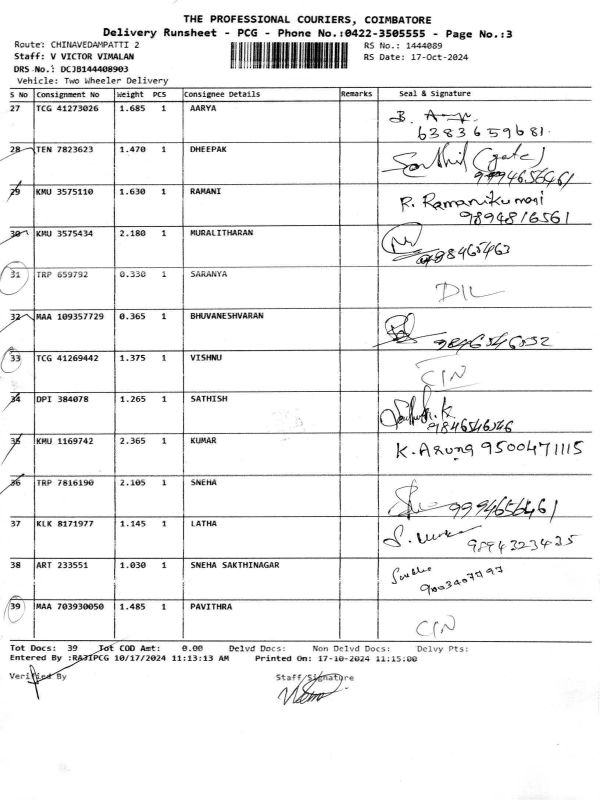 THE PROFESSIONAL COURIERS, COIMBATORE
Delivery Runsheet - PCG - Phone No.:0422-3505555 - Page No.:3
Route: CHINAVEDAMPATTI 2 RS No.: 1444089
Staff: V VICTOR VIMALAN RS Date: 17-Oct-2024
DRS No.: DCJB144408903
Vehicle: Two Wheeler Delivery
S No Consignment No Weight PCS Consignee Details Remarks Seal & Signature
27 TCG 41273026 1.685 1 AARYA B.
6383659681
28 TEN 7823623 1.470 1 DHEEPAK Senthil (gate)
9994656461
29 KMU 3575110 1.630 1 RAMANI R. Ramanikumari
9894816561
30 KMU 3575434 2.180 1 MURALITHARAN
31 TRP 659792 0.330 1 SARANYA DIL
32 MAA 109357729 0.365 1 BHUVANESHVARAN
33 TCG 41269442 1.375 1 VISHNU CIN
34 DPI 384078 1.265 1 SATHISH
35 KMU 1169742 2.365 1 KUMAR K. Aruna 9500471115
36 TRP 7816190 2.105 1 SNEHA 9994656461
37 KLK 8171977 1.145 1 LATHA
9894323435
38 ART 233551 1.030 1 SNEHA SAKTHINAGAR
39 MAA 703930050 1.485 1 PAVITHRA CIN
Tot Docs: 39 Tot COD Amt: 0.00 Delvd Docs: Non Delvd Docs: Delvy Pts:
Entered By :RAJIPCG 10/17/2024 11:13:13 AM Printed On: 17-10-2024 11:15:00
Verified By Staff/Signature